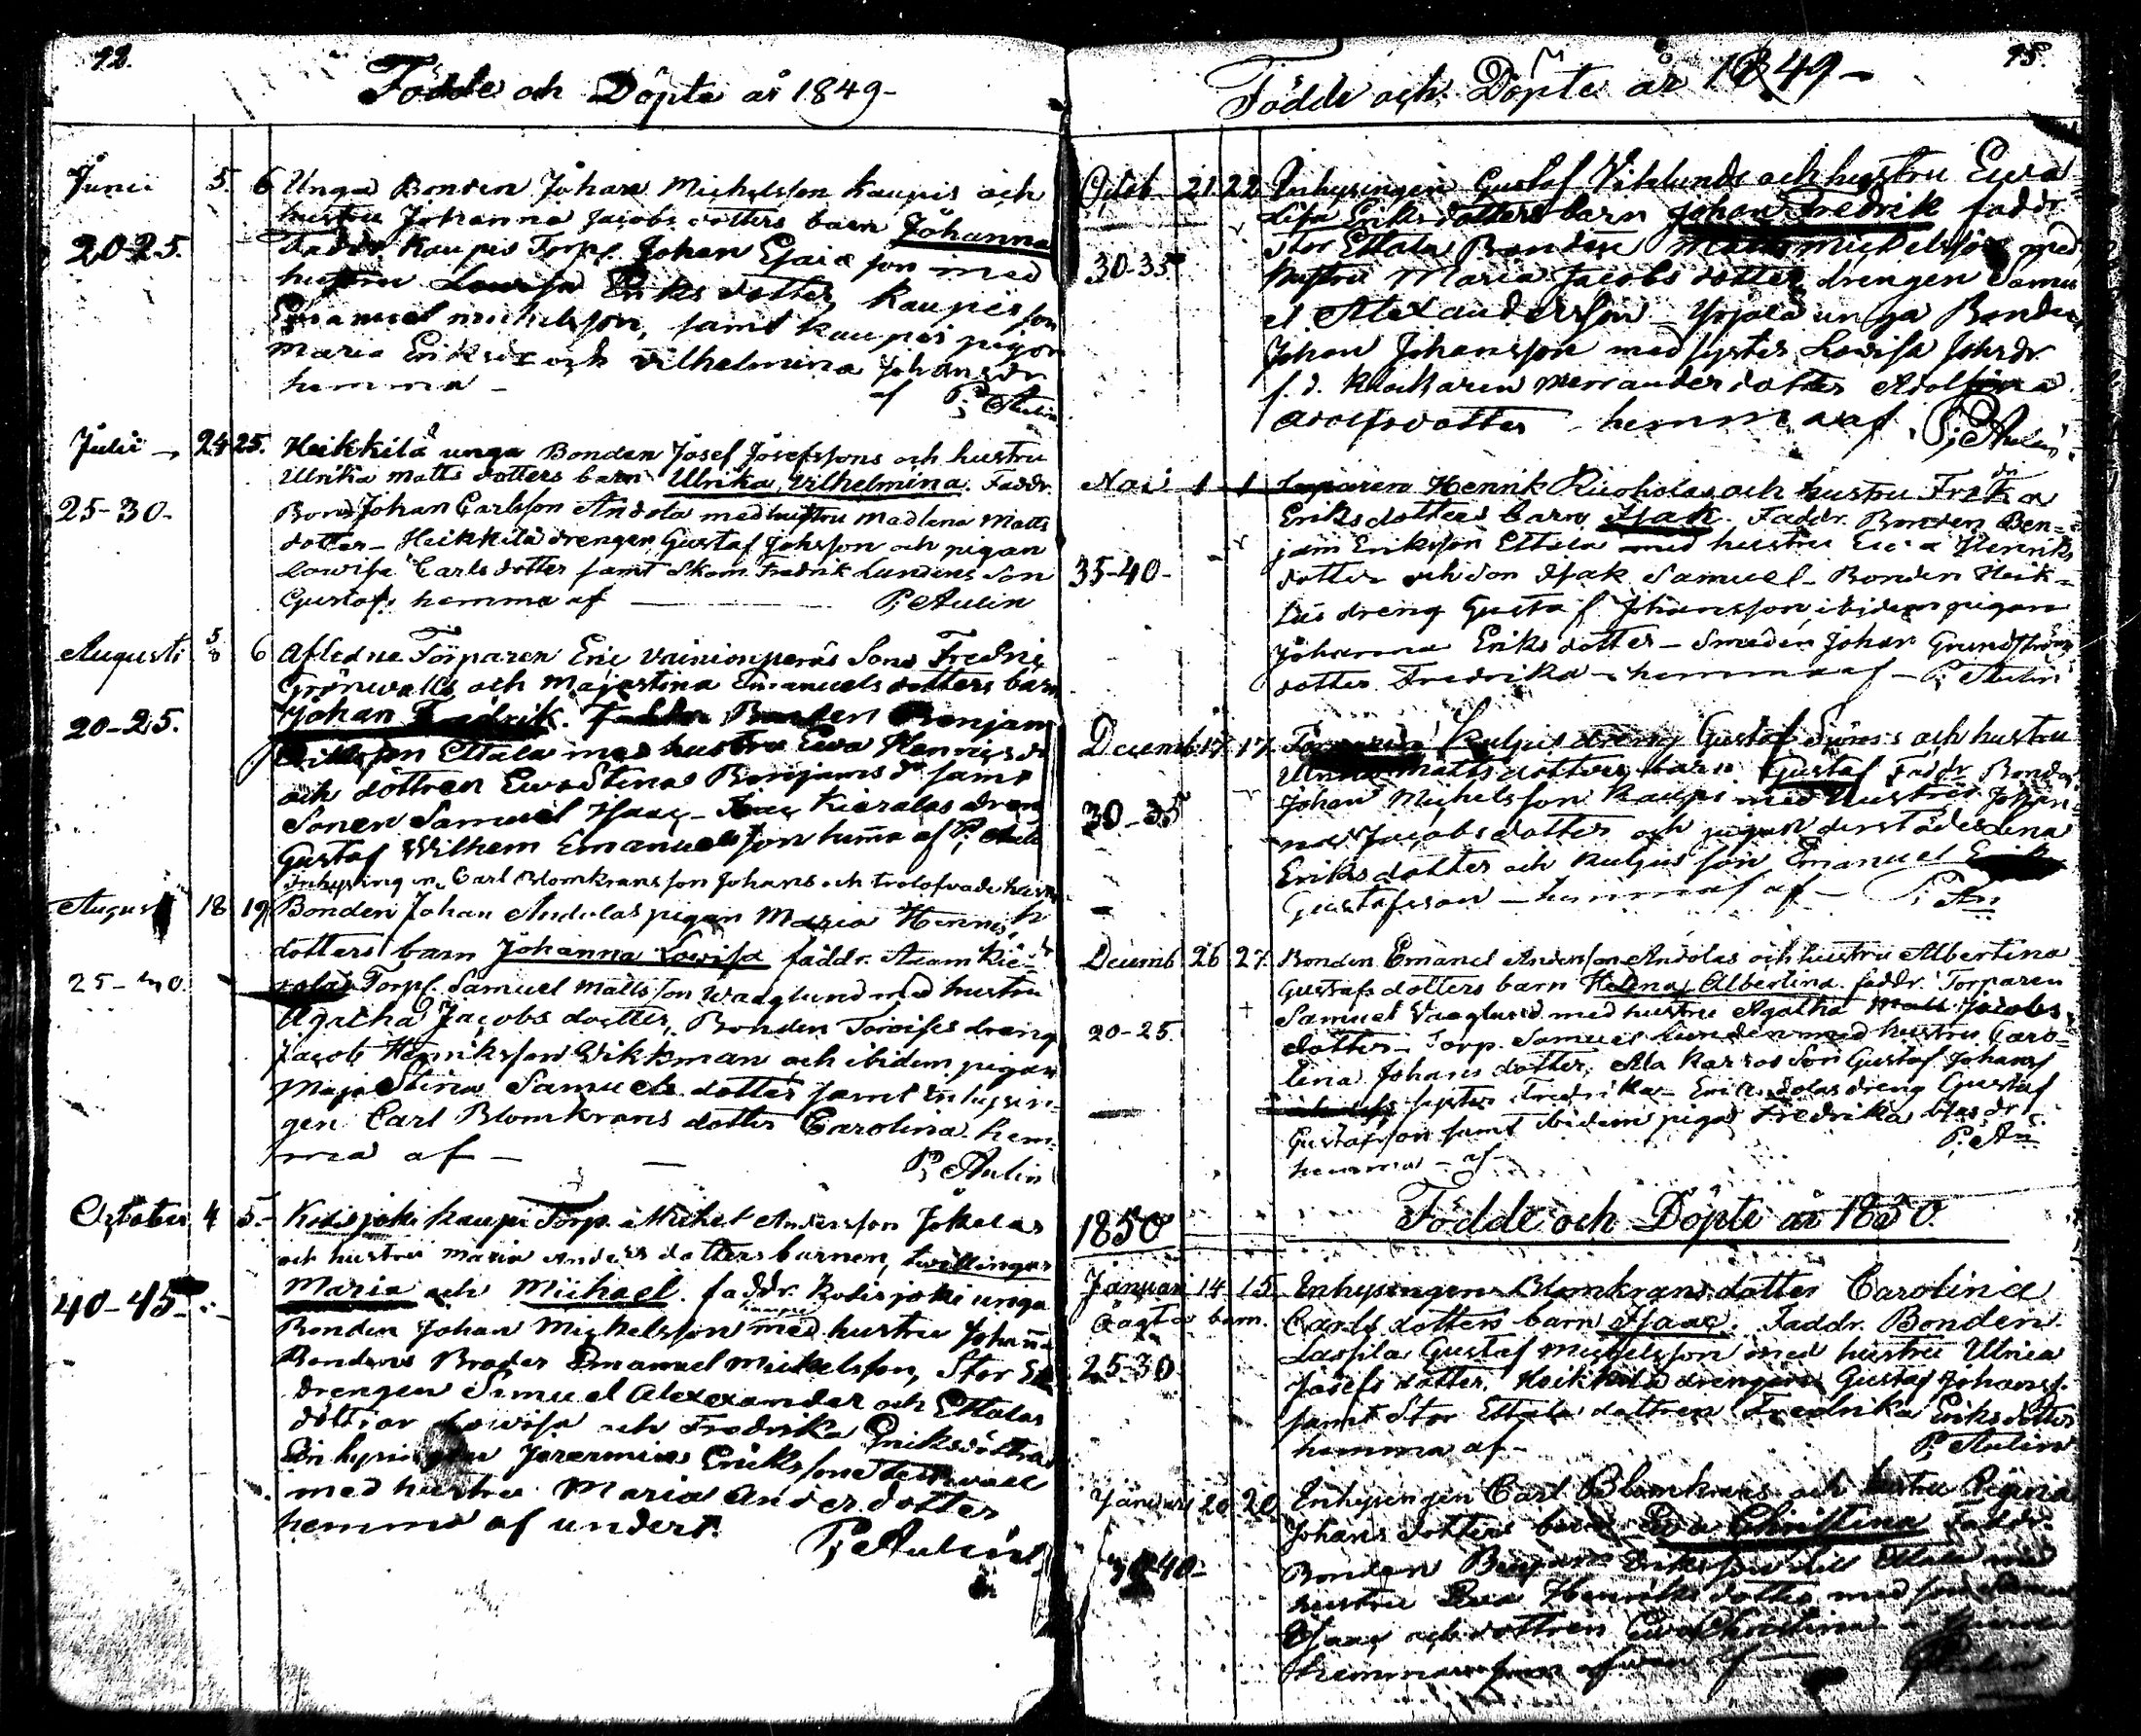 92.
Födde och Döpte år 1849-
Junii 5. 6 Unga Bonden Johan Michelsson Kaupis och
hustru Johanna Jacobs dotters barn Johanna
20-25. Faddr. Kaupis Torp. Johan Esaia son med
hustru Lowisa Eriks dotter, Kaupis son
Emanuel Michelsson, samt Kaupis pigor
Maria Eriksdr och Vilhelmina Johansdr
hemma - af P; Aulin
Julii - 24 25. Heikkilä unga Bonden Josef Josefssons och hustru
Ulrika Matts dotters barn Ulrika Vilhelmina. Faddr.
25-30. Bond Johan Carlsson Andola med hustru Madlena Matts
dotter - Heikkilä drengen Gustaf Johsson och pigan
Lowisa Carls dotter samt Skom. Fredrik Lundens Son
Gustaf. hemma af P; Aulin
Augusti 5 6 Aflidne Torparen Eric Vainionperäs Sons Fredric
Grönwalls och Majastina Emanuels dotters barn
20-25. Johan Fredrik. Faddr Bonden Benjam
Ericksson Ettala med hustru Ewa Henricsdr
och dottren Ewa Stina Benjams dr samt
Sonen Samuel Isaac - Kierolas dreng
Gustaf Wilhem Emanuelsson hema af P; Aulin
Inhysing n. Carl Blomkrans son Johans och trolofvade
Augusti 18 19 Bonden Johan Andolas pigan Maria Henric
dotters barn Johanna Lowisa faddr. Adam Kie-
25-40. rolas Torp. Samuel Matts son Waaglund med hustru
Agatha Jacobs dotter, Bonden dreng
Jacob Henriksson Wikkman och ibidem pigan
Maja Stina Samuels dotter samt Inhysin-
gen Carl Blomkrans dotter Carolina. hem-
ma af - P; Aulin
October 4 5.- Kotisjoki Kaupi Torp. Michel Andersson Jokelas
och hustru Maria Anders dotters barnen, twillingar
Maria och Michael. faddr. Kotisjoki unga
40-45 Bonden Johan Mickelsson med hustru Johana
Bondens Broder Emanuel Mickelsson, Stor
drengen Samuel Alexander och Ettalas
döttrar Lowisa och Fredrika Eriksdöttrar
Inhysingen Jeremias Eriksson
med hustru Maria Anders dotter
hemma af undert. P; Aulin
93.
Födde och Döpte år 1849 -
Octob. 21 22 Inhysingen Gustaf Viklunds och hustru Ewa
Lisa Eriks dotters barn Johan Fredrik faddr.
30-35 Stor Ettala Bonden Matts Mickelsson med
hustru Maria Jacobs dotter, drengen Samu
el Alexandersson - Yrjälä unga Bonden
Johan Johansson med syster Lowisa Johsdr
f.d. Klockaren dotter Adolfina
Adolfsdotter - hemma af P; Aulin
Nov. 1 1 Torparen Henrik Ruoholas och hustru Fredrika
Eriksdotters barn Isak. Faddr. Bonden Ben-
jam Eriksson Ettala med hustru Ewa Henriks
35-40- dotter och son Isak Samuel - Bonden Heik-
läs dreng Gustaf Johansson, ibidem pigan
Johanna Eriks dotter - Smeden Johan Grundströms
dotter Fredrika - hemma af - P; Aulin
Decemb 17 17 Kuljus dreng Gustaf och hustru
Matts dotters barn Gustaf Faddr Bonden
30-35 Johan Michelsson Kaupi med hustru Johan-
na Jacobs dotter och pigan derstädes Lena
Eriks dotter och Kuljus son Emanuel
Gustafsson - hemma af - P; An
Decemb 26 27 Bonden Emanel Andersson Andolas och hustru Albertina
Gustafs dotters barn Helena Albertina. faddr. Torparen
Samuel Vaaglund med hustru Agatha Jacobs
20-25. dotter - Torp. Samuel Lunden med hustru Caro-
lina Johans dotter, Ala Son Gustaf Johans
syster Fredrika - dreng Gustaf
Gustafsson samt ibidem piga Fredrika
hemma - af P; An
1850 Födde och Döpte år 1850.
Januari 14 15 Enhysingen Blomkrans dotter Carolina
Oägta barn. Carls dotters barn Isaac. Faddr. Bonden
25-30 Lassila Gustaf Michelsson med hustru Ulrica
Josefs dotter. Heikkilä drengen Gustaf Johanss.
samt Stor Ettala dottren Fredrika Eriksdotter
hemma af - P; Aulin
Januari 20 20 Enhysingen Carl Blomkrans och hustru Regina
Johans dotters barn Eva Christina Faddr.
40- Bonden Benjam Eriksson Ettala med
hustru Eva Henriks dotter med son Samuel
Isaac och dottren Ewa Christina
hemma af Aulin